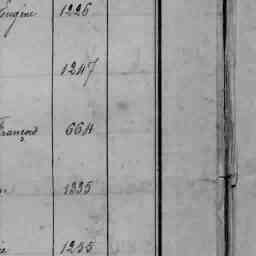 Eugène 1226
1247
François 664
1335
1255